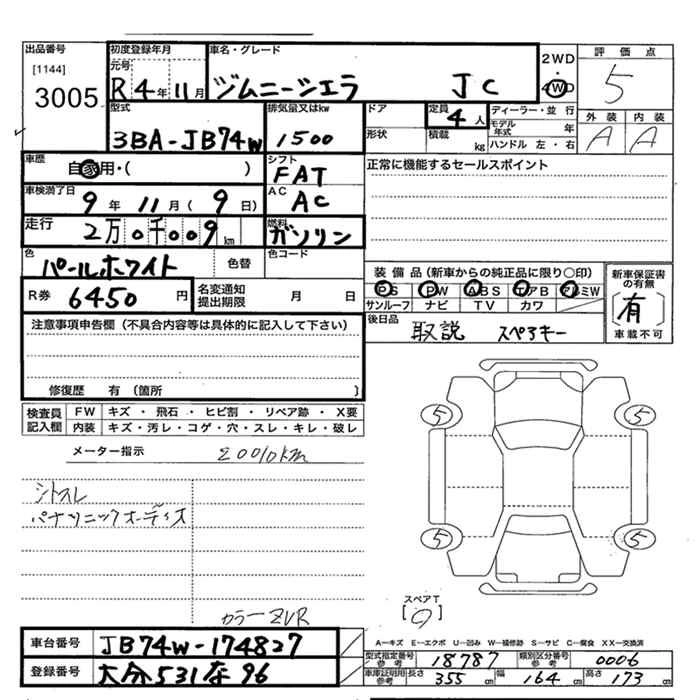 出品番号 初度登録年月 車名・グレード 2WD 評価点
[1144] 元号 R4年11月 ジムニーシエラ JC 4WD 5
3005
型式 排気量又はkw ドア 定員 4人 ディーラー・並行 外装 内装
3BA-JB74W 1500 形状 積載 kg モデル年式 年 A A
ハンドル 左・右
車歴 自家用・( ) シフト FAT 正常に機能するセールスポイント
車検満了日 9年11月(9日) AC AC
走行 2万0千009km 燃料 ガソリン
色 パールホワイト 色替 色コード
装備品(新車からの純正品に限り○印) 新車保証書の有無
PS PW ABS エアB アルミW [有]
サンルーフ ナビ TV カワ 車載不可
R券 6450円 名変通知提出期限 月 日
後日品 取説 スペアキー
注意事項申告欄(不具合内容等は具体的に記入して下さい)
修復歴 有(箇所 )
検査員記入欄 FW キズ・飛石・ヒビ割・リペア跡・X要
内装 キズ・汚レ・コゲ・穴・スレ・キレ・破レ
メーター指示 20010km
5 5
シトスレ
パナソニックオーディオ
5 5
スペアT
[9]
カラーZVR
A－キズ E－エクボ U－凹み W－補修跡 S－サビ C－腐食 XX－交換済
車台番号 JB74W-174827
型式指定番号参考 18787 類別区分番号参考 0006
登録番号 大分531な96
車庫証明用参考 長さ 355cm 幅 164cm 高さ 173cm